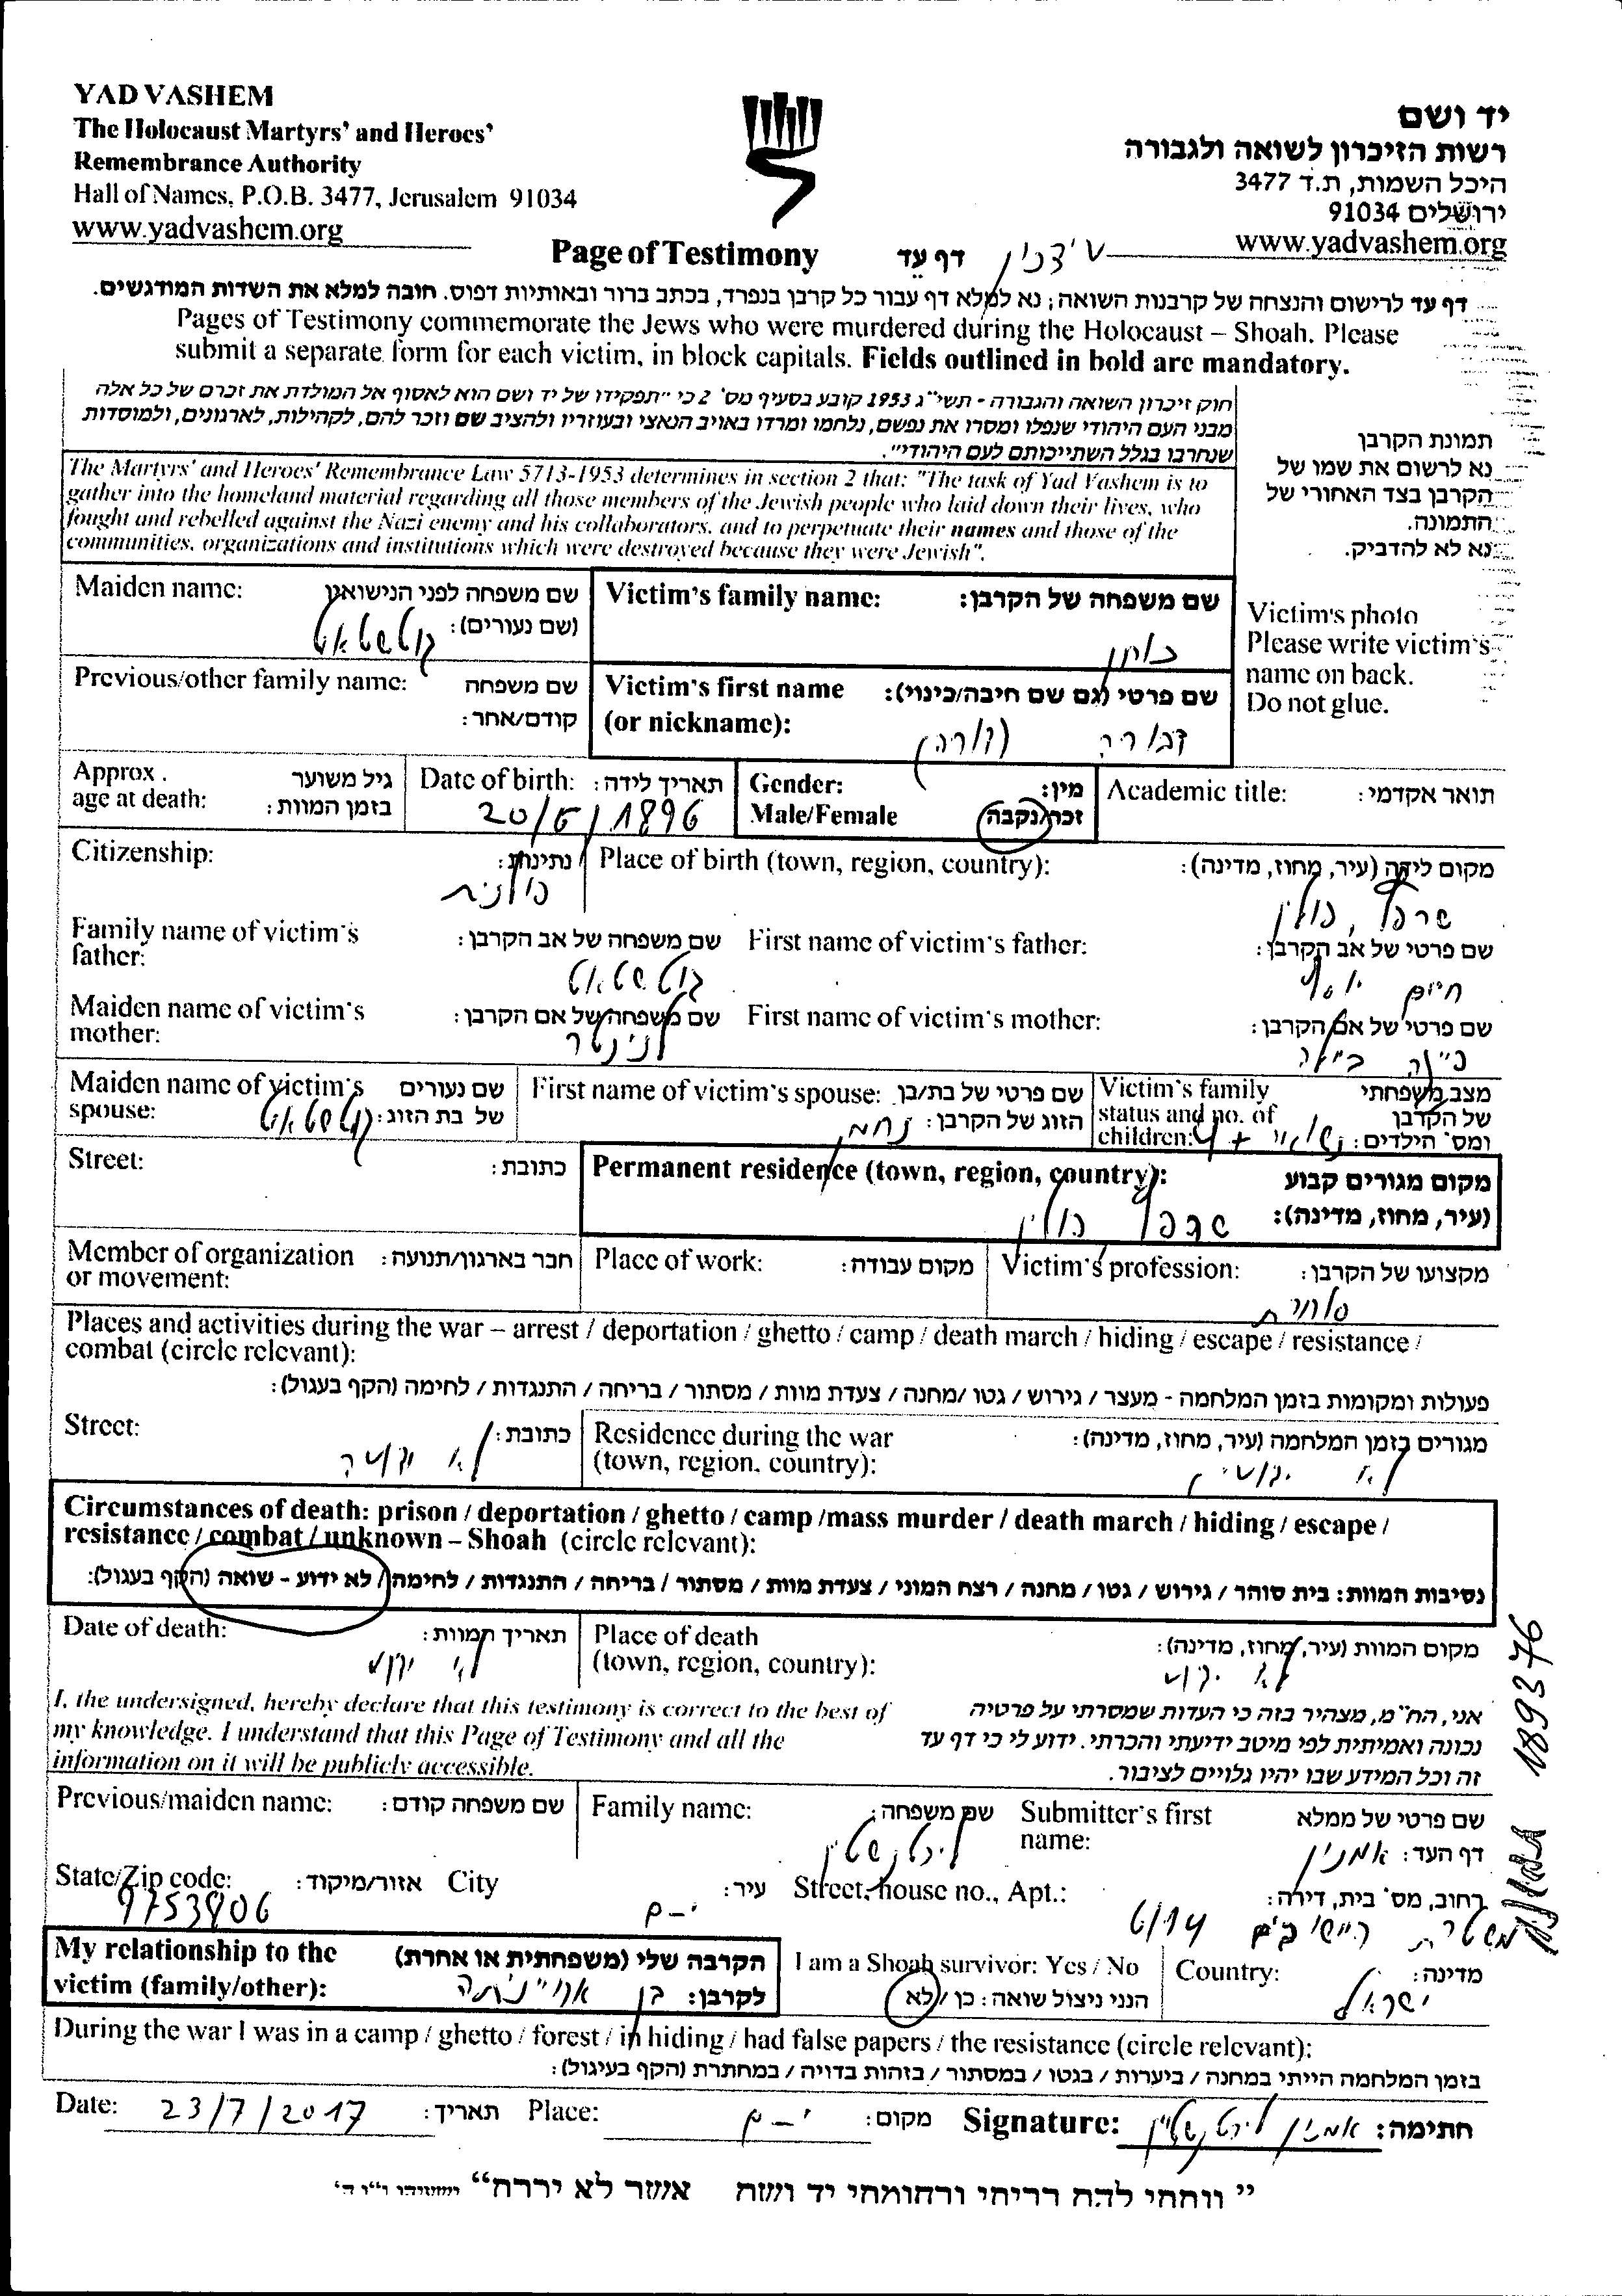 YAD VASHEM
The Holocaust Martyrs' and Heroes'
Remembrance Authority
Hall of Names, P.O.B. 3477, Jerusalem 91034
www.yadvashem.org
יד ושם
רשות הזיכרון לשואה ולגבורה
היכל השמות, ת.ד 3477
ירושלים 91034
www.yadvashem.org
Page of Testimony דף עד
דף עד לרישום והנצחה של קרבנות השואה; נא למלא דף עבור כל קרבן בנפרד, בכתב ברור ובאותיות דפוס. חובה למלא את השדות המודגשים.
Pages of Testimony commemorate the Jews who were murdered during the Holocaust – Shoah. Please
submit a separate form for each victim, in block capitals. Fields outlined in bold are mandatory.
חוק זיכרון השואה והגבורה - תשי"ג 1953 קובע בסעיף מס' 2 כי "תפקידו של יד ושם הוא לאסוף אל המולדת את זכרם של כל אלה
מבני העם היהודי שנפלו ומסרו את נפשם, נלחמו ומרדו באויב הנאצי ובעוזריו ולהציב שם וזכר להם, לקהילות, לארגונים, ולמוסדות
שנחרבו בגלל השתייכותם לעם היהודי".
The Martyrs' and Heroes' Remembrance Law 5713-1953 determines in section 2 that: "The task of Yad Vashem is to
gather into the homeland material regarding all those members of the Jewish people who laid down their lives, who
fought and rebelled against the Nazi enemy and his collaborators, and to perpetuate their names and those of the
communities, organizations and institutions which were destroyed because they were Jewish".
תמונת הקרבן
נא לרשום את שמו של
הקרבן בצד האחורי של
התמונה.
נא לא להדביק.
Victim's photo
Please write victim's
name on back.
Do not glue.
Maiden name: שם משפחה לפני הנישואין
(שם נעורים): גוטשטאט
Victim's family name: שם משפחה של הקרבן:
Previous/other family name: שם משפחה
קודם/אחר:
Victim's first name שם פרטי (גם שם חיבה/כינוי):
(or nickname): דבורה (דורה)
Approx. age at death: גיל משוער
בזמן המוות:
Date of birth: תאריך לידה:
20/5/1896
Gender: מין:
Male/Female זכר/נקבה
Academic title: תואר אקדמי:
Citizenship: נתינות:
פולנית
Place of birth (town, region, country): מקום לידה (עיר, מחוז, מדינה):
שרפץ, פולין
Family name of victim's father: שם משפחה של אב הקרבן:
גוטשטאט
First name of victim's father: שם פרטי של אב הקרבן:
חיים יוסף
Maiden name of victim's mother: שם משפחה של אם הקרבן:
First name of victim's mother: שם פרטי של אם הקרבן:
Maiden name of victim's spouse: שם נעורים
של בת הזוג: גוטשטאט
First name of victim's spouse: שם פרטי של בת/בן
הזוג של הקרבן: נחמן
Victim's family status and no. of children: מצב משפחתי
של הקרבן
ומס' הילדים: נשואי + 4
Street: כתובת:
Permanent residence (town, region, country): מקום מגורים קבוע
(עיר, מחוז, מדינה): שרפץ פולין
Member of organization or movement: חבר בארגון/תנועה:
Place of work: מקום עבודה:
Victim's profession: מקצועו של הקרבן:
סוחרת
Places and activities during the war – arrest / deportation / ghetto / camp / death march / hiding / escape / resistance /
combat (circle relevant):
פעולות ומקומות בזמן המלחמה - מעצר / גירוש / גטו /מחנה / צעדת מוות / מסתור / בריחה / התנגדות / לחימה (הקף בעגול):
Street: כתובת:
לא ידוע
Residence during the war מגורים בזמן המלחמה (עיר, מחוז, מדינה):
(town, region, country): לא ידוע
Circumstances of death: prison / deportation / ghetto / camp /mass murder / death march / hiding / escape /
resistance / combat / unknown – Shoah (circle relevant):
נסיבות המוות: בית סוהר / גירוש / גטו / מחנה / רצח המוני / צעדת מוות / מסתור / בריחה / התנגדות / לחימה / לא ידוע - שואה (הקף בעגול):
Date of death: תאריך המוות:
לא ידוע
Place of death מקום המוות (עיר, מחוז, מדינה):
(town, region, country): לא ידוע
I, the undersigned, hereby declare that this testimony is correct to the best of
my knowledge. I understand that this Page of Testimony and all the
information on it will be publicly accessible.
אני, הח"מ, מצהיר בזה כי העדות שמסרתי על פרטיה
נכונה ואמיתית לפי מיטב ידיעתי והכרתי. ידוע לי כי דף עד
זה וכל המידע שבו יהיו גלויים לציבור.
Previous/maiden name: שם משפחה קודם:
Family name: שם משפחה:
ליכטנשטיין
Submitter's first name: שם פרטי של ממלא
דף העד: אמנון
State/Zip code: אזור/מיקוד:
9753906
City עיר:
י-ם
Street, house no., Apt.: רחוב, מס' בית, דירה:
משטרת הישובים 6/14
My relationship to the הקרבה שלי (משפחתית או אחרת)
victim (family/other): לקרבן: בן אחיינתה
I am a Shoah survivor: Yes / No
הנני ניצול שואה: כן / לא
Country: מדינה:
ישראל
During the war I was in a camp / ghetto / forest / in hiding / had false papers / the resistance (circle relevant):
בזמן המלחמה הייתי במחנה / ביערות / בגטו / במסתור / בזהות בדויה / במחתרת (הקף בעיגול):
Date: 23/7/2017 תאריך: Place: י-ם מקום: Signature: אמנון ליכטנשטיין חתימה:
189376